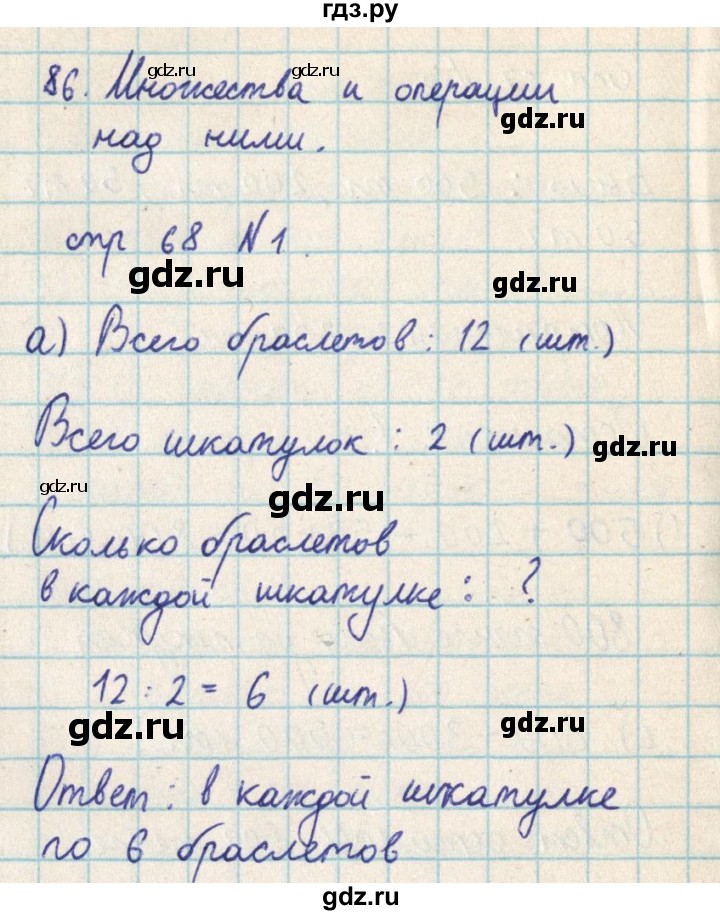 гдз.ру
gdz.ru
86. Множества и операции
gdz.ru
gdz.ru
над ними.
стр 68 №1
gdz.ru
gdz.ru
а) Всего браслетов: 12 (шт.)
Всего шкатулок: 2 (шт.)
gdz.ru
gdz.ru
gdz.ru
Сколько браслетов
в каждой шкатулке: ?
12 : 2 = 6 (шт.)
gdz.ru
gdz.ru
Ответ: в каждой шкатулке
по 6 браслетов
gdz.ru